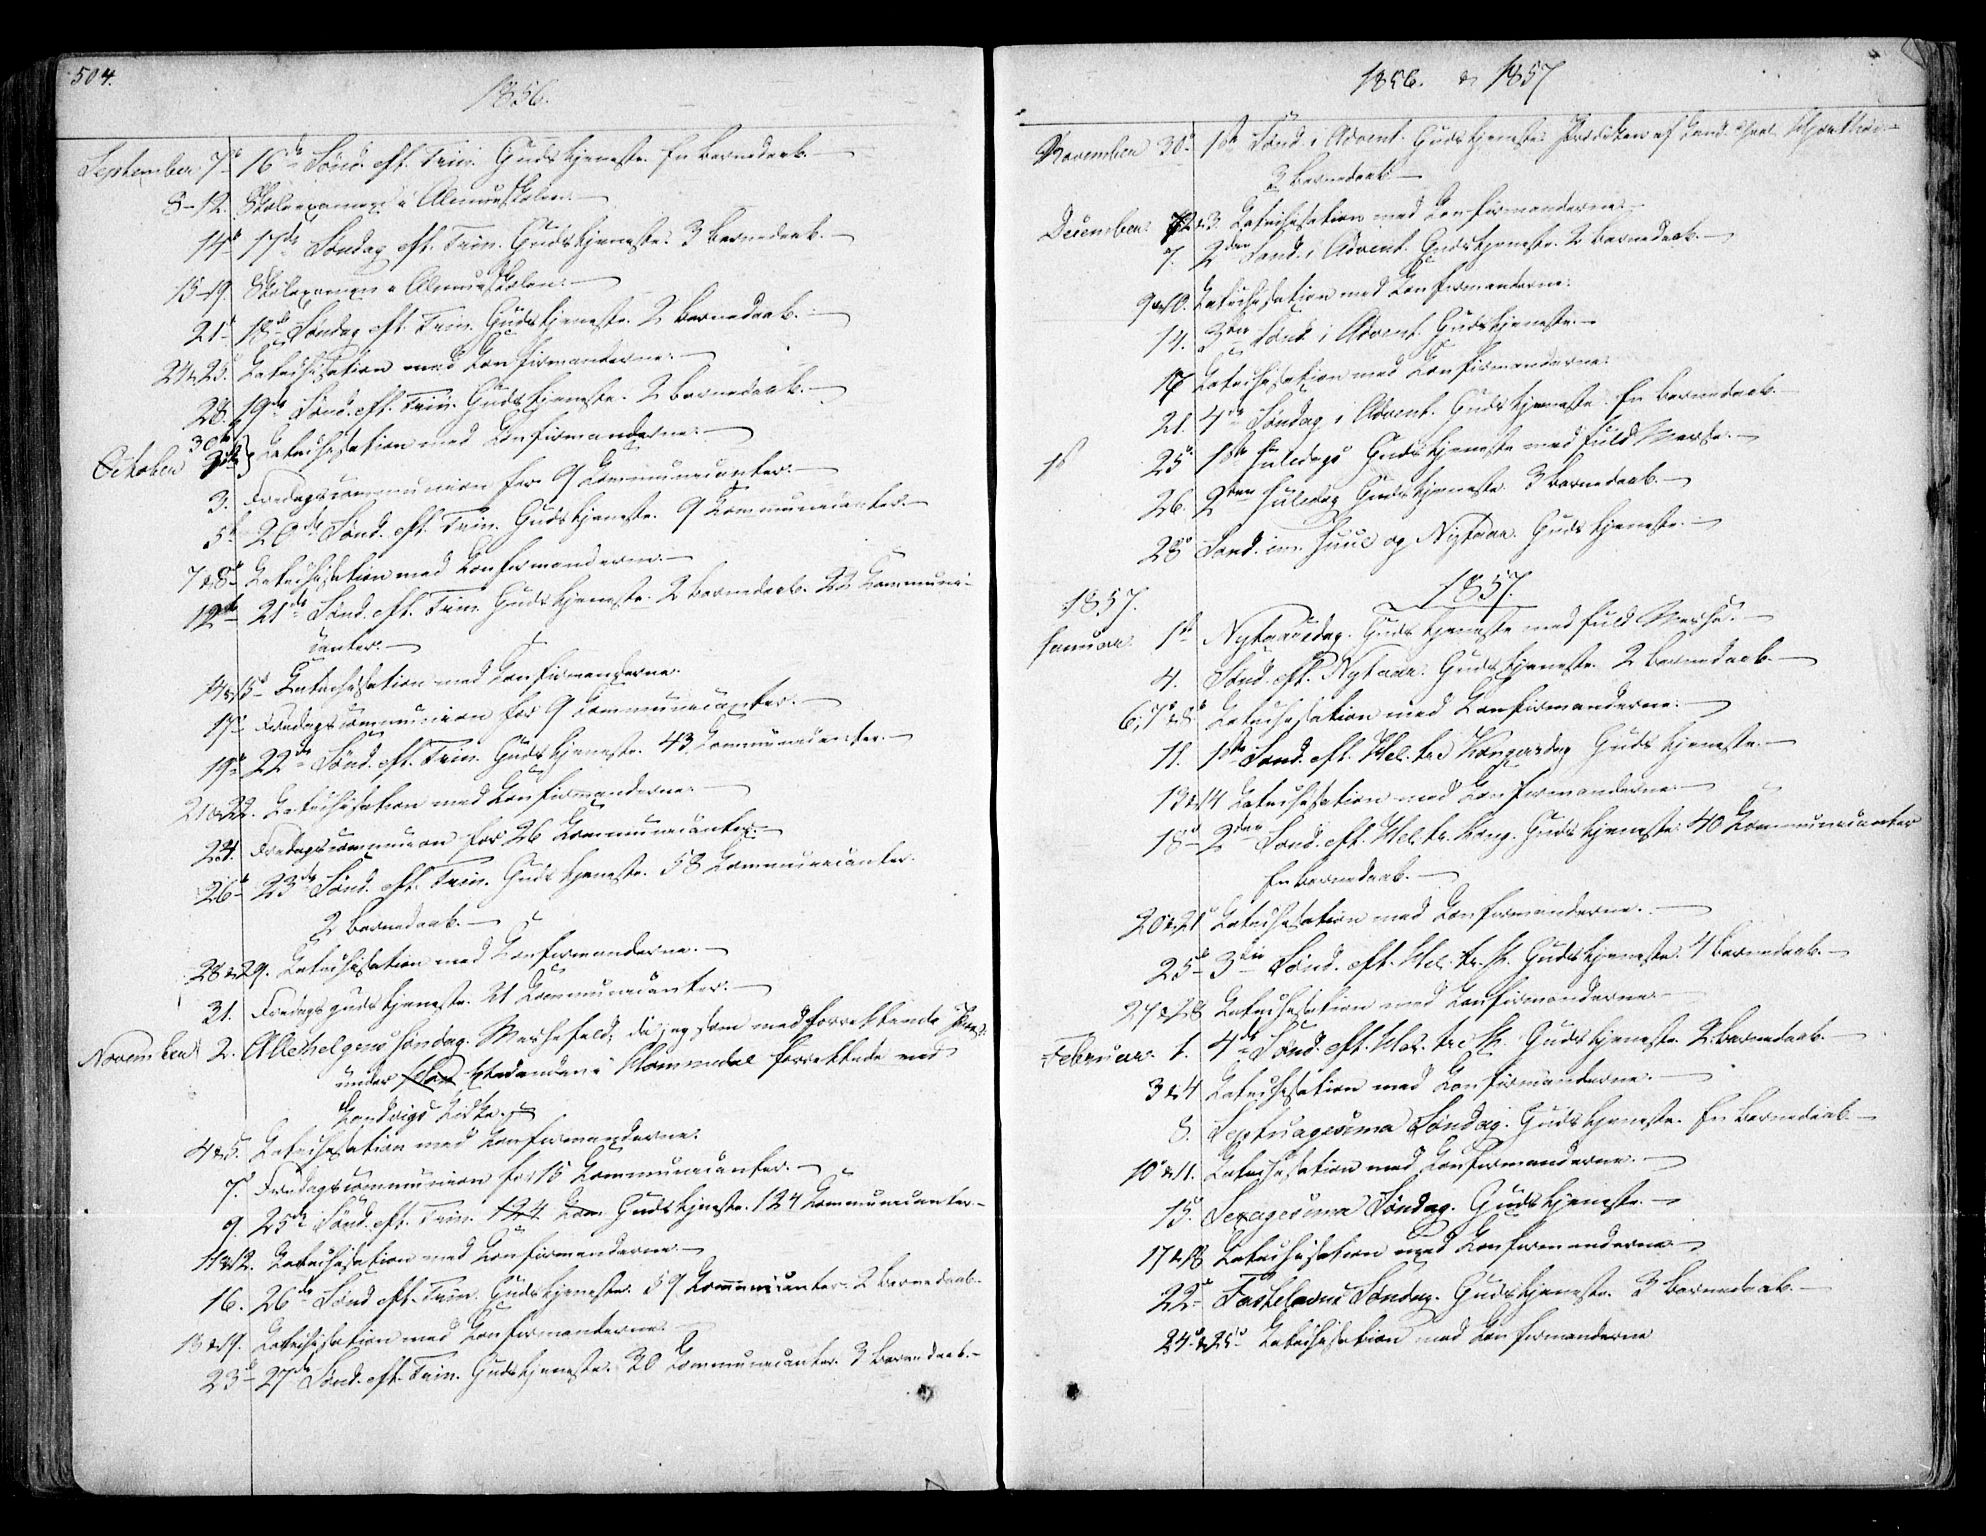 504.
1856.
September 7de 16de Sønd. eft. Trin. Gudstjeneste. En Barnedaab.
8-12. Skoleexamen i Almueskolen.
14de 17de Søndag eft. Trin. Gudstjeneste. 3 Barnedaab.
15-19. Skoleexamen i Almueskolen.
21de 18de Søndag eft. Trin. Gudstjeneste. 2 Barnedaab.
24 & 25. Catechisation med Confirmanderne.
28. 19de Sønd. eft. Trin. Gudstjeneste. 2 Barnedaab.
30te
October } Catechisation med Confirmanderne.
3. Fredagscommunion for 9 Communicanter.
5te 20de Sønd. eft. Trin. Gudstjeneste. 9 Communicanter.
7 & 8de Catechisation med Confirmanderne.
12te 21de Sønd. eft. Trin. Gudstjeneste. 2 Barnedaab. 22 Communi-
canter.
14 & 15de Catechisation med Confirmanderne.
17de Fredagscommunion for 9 Communicanter.
19de 22de Sønd. eft. Trin. Gudstjeneste. 43 Communicanter.
21 & 22. Catechisation med Confirmanderne.
24. Fredagscommunion for 26 Communicanter.
26de 23de Sønd. eft. Trin. Gudstjeneste. 58 Communicanter.
2 Barnedaab.
28 & 29. Catechisation med Confirmanderne.
31. Fredagsgudstjeneste. 21 Communicanter.
November 2. Allehelgens Søndag. Messefald, da jeg som medforrettende
under i forrettede ved
Kirke.
4 & 5. Catechisation med Confirmanderne.
7de Fredagscommunion for 15 Communicanter.
9. 25de Sønd. eft. Trin. 124 Com. Gudstjeneste. 124 Communicanter.
11 & 12. Catechisation med Confirmanderne.
16. 26de Sønd eft. Trin. Gudstjeneste. 59 Communicanter. 2 Barnedaab.
18 & 19. Catechisation med Confirmanderne.
23de 27de Sønd. eft. Trin. Gudstjeneste. 30 Communicanter. 3 Barnedaab.
1856. & 1857
November 30te 1ste Sønd. i Advent. Gudstjeneste. Prædiken af Cand.
2 Barnedaab
December 2 & 3. Catechisation med Confirmanderne.
7. 2den Sønd. i Advent. Gudstjeneste. 2 Barnedaab.
9 & 10. Catechisation med Confirmanderne.
14. 3die Sønd. i Advent. Gudstjeneste.
17 Catechisation med Confirmanderne.
21. 4de Søndag i Advent. Gudstjeneste. En Barnedaab.
25de 1ste Juledags Gudstjeneste med fuld Messe.
26. 2den Juledag Gudstjeneste 3 Barnedaab.
28de Sønd. im. Juul og Nytaar. Gudstjeneste.
1857.
1857.
Januar 1ste Nytaarsdag. Gudstjeneste med fuld Messe.
4. Sønd. eft. Nytaar. Gudstjeneste. 2 Barnedaab.
6, 7de & 8de Catechisation med Confirmanderne.
11. 1ste Sønd. eft. Hel. tre Kongersdag Gudstjeneste.
13 & 14 Catechisation med Confirmanderne.
18de 2den Sønd. eft. Hel. tr. Kong. Gudstjeneste. 40 Communicanter
En Barnedaab.
20 & 21de Catechisation med Confirmanderne.
25de 3die Sønd. eft. Hel. tr. K. Gudstjeneste. 4 Barnedaab.
27 & 28 Catechisation med Confirmanderne.
Februar. 1. 4de Sønd. eft. Hel. tre K. Gudstjeneste. 2 Barnedaab.
3 & 4 Catechisation med Confirmanderne.
8. Septuagesima Søndag. Gudstjeneste. En Barnedaab.
10de & 11. Catechisation med Confirmanderne.
15. Sexagesima Søndag. Gudstjeneste.
17 & 18 Catechisation med Confirmanderne
22de Fastelavns Søndag. Gudstjeneste. 3 Barnedaab.
24de & 25de Catechisation med Confirmanderne